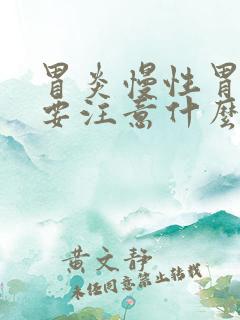 胃炎慢性胃
要注意什麼
黄文静
未经同意禁止转载